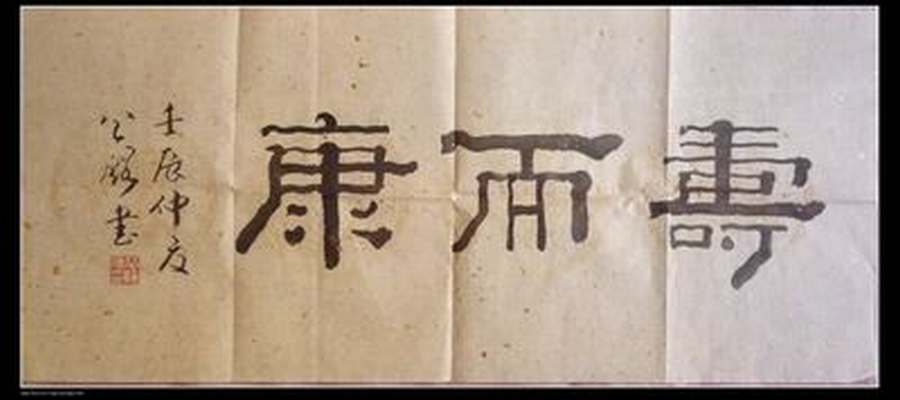 壽而康
壬辰仲夏
公 書